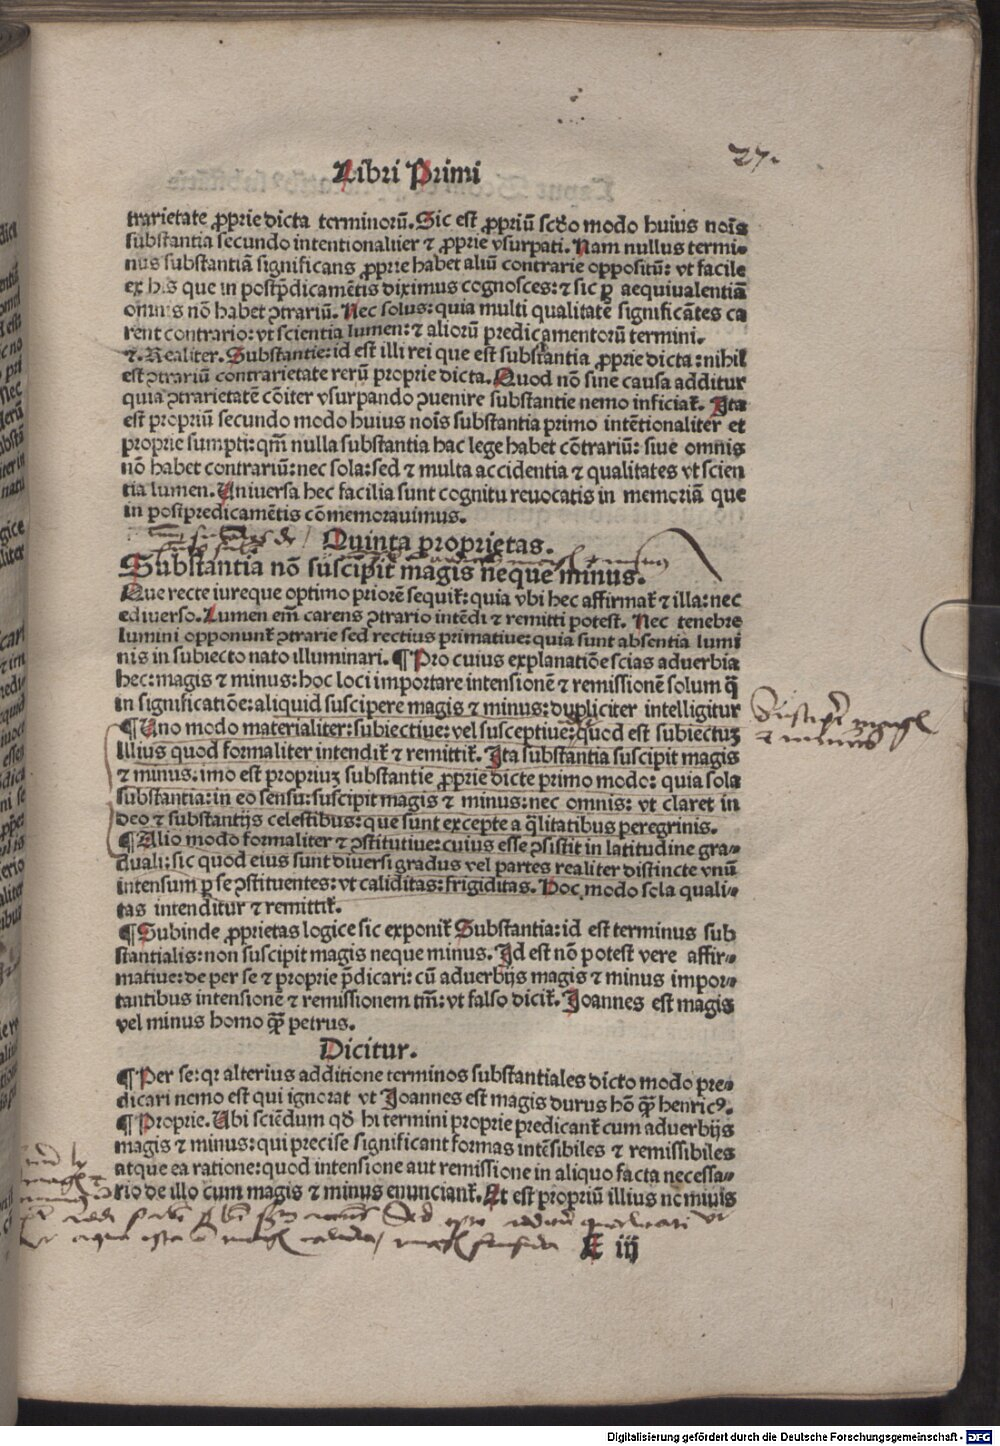 27.
Libri Primi
trarietate ꝓprie dicta terminorū. Sic est ꝓpriū scďo modo huius nois̄
substantia secundo intentionaliter ⁊ ꝓprie vsurpati. Nam nullus termi⸗
nus substantiā significans ꝓprie habet aliū contrarie oppositū: vt facile
ex his que in postp̄dicamētis diximus cognosces: ⁊ sic ꝑ aequiualentiā
omnis nō habet ꝯtrariū. Nec solus: quia multi qualitatē significātes ca
rent contrario: vt scientia lumen: ⁊ aliorū predicamentorū termini.
⁊. Realiter. Substantie: id est illi rei que est substantia ꝓprie dicta: nihil
est ꝯtrariū contrarietate rerū proprie dicta. Quod nō sine causa additur
quia ꝯtrarietatē cōiter vsurpando ꝯuenire substantie nemo inficiat̄. Ita
est propriū secundo modo huius nois̄ substantia primo intētionaliter et
proprie sumpti: qm̄ nulla substantia hac lege habet cōtrariū: siue omnis
nō habet contrariū: nec sola: sed ⁊ multa accidentia ⁊ qualitates vt scien
tia lumen. Uniuersa hec facilia sunt cognitu reuocatis in memoriā que
in postpredicamētis cōmemorauimus.
Quinta proprietas.
Substantia nō suscipit magis neque minus.
Que recte iureque optimo priorē sequit̄: quia vbi hec affirmat̄ ⁊ illa: nec
ediuerso. Lumen em̄ carens ꝯtrario intēdi ⁊ remitti potest. Nec tenebre
lumini opponunt̄ ꝯtrarie sed rectius priuatiue: quia sunt absentia lumi
nis in subiecto nato illuminari. ¶ Pro cuius explanatiōe scias aduerbia
hec: magis ⁊ minus: hoc loci importare intensionē ⁊ remissionē solum q̄
in significatiōe: aliquid suscipere magis ⁊ minus: dupliciter intelligitur
¶ Uno modo materialiter: subiectiue: vel susceptiue: quod est subiectuꝫ
illius quod formaliter intendit̄ ⁊ remittit̄. Ita substantia suscipit magis
⁊ minus: imo est propriuꝫ substantie ꝓprie dicte primo modo: quia sola
substantia: in eo sensu: suscipit magis ⁊ minus: nec omnis: vt claret in
deo ⁊ substantijs celestibus: que sunt excepte a q̄litatibus peregrinis.
¶ Alio modo formaliter ⁊ ꝯstitutiue: cuius esse ꝯsistit in latitudine gra⸗
duali: sic quod eius sunt diuersi gradus vel partes realiter distincte vnū
intensum ꝑ se ꝯstituentes: vt caliditas: frigiditas. Hoc modo sola quali⸗
tas intenditur ⁊ remittit̄.
¶ Subinde ꝓprietas logice sic exponit̄ Substantia: id est terminus sub
stantialis: non suscipit magis neque minus. Id est nō potest vere affir⸗
matiue: de per se ⁊ proprie p̄dicari: cū aduerbijs magis ⁊ minus impor⸗
tantibus intensionē ⁊ remissionem tm̄: vt falso dicit̄. Joannes est magis
vel minus homo qꝫ̄ petrus.
Dicitur.
¶ Per se: qꝛ alterius additione terminos substantiales dicto modo pre⸗
dicari nemo est qui ignorat vt Joannes est magis durus hō qꝫ̄ henricꝰ.
¶ Proprie. Ubi sciēdum qď hi termini proprie predicant̄ cum aduerbijs
magis ⁊ minus: qui precise significant formas intēsibiles ⁊ remissibiles
atque ea ratione: quod intensione aut remissione in aliquo facta necessa⸗
rio de illo cum magis ⁊ minus enunciant̄. Et est propriū illius nominis
E iij
Digitalisierung gefördert durch die Deutsche Forschungsgemeinschaft - DFG